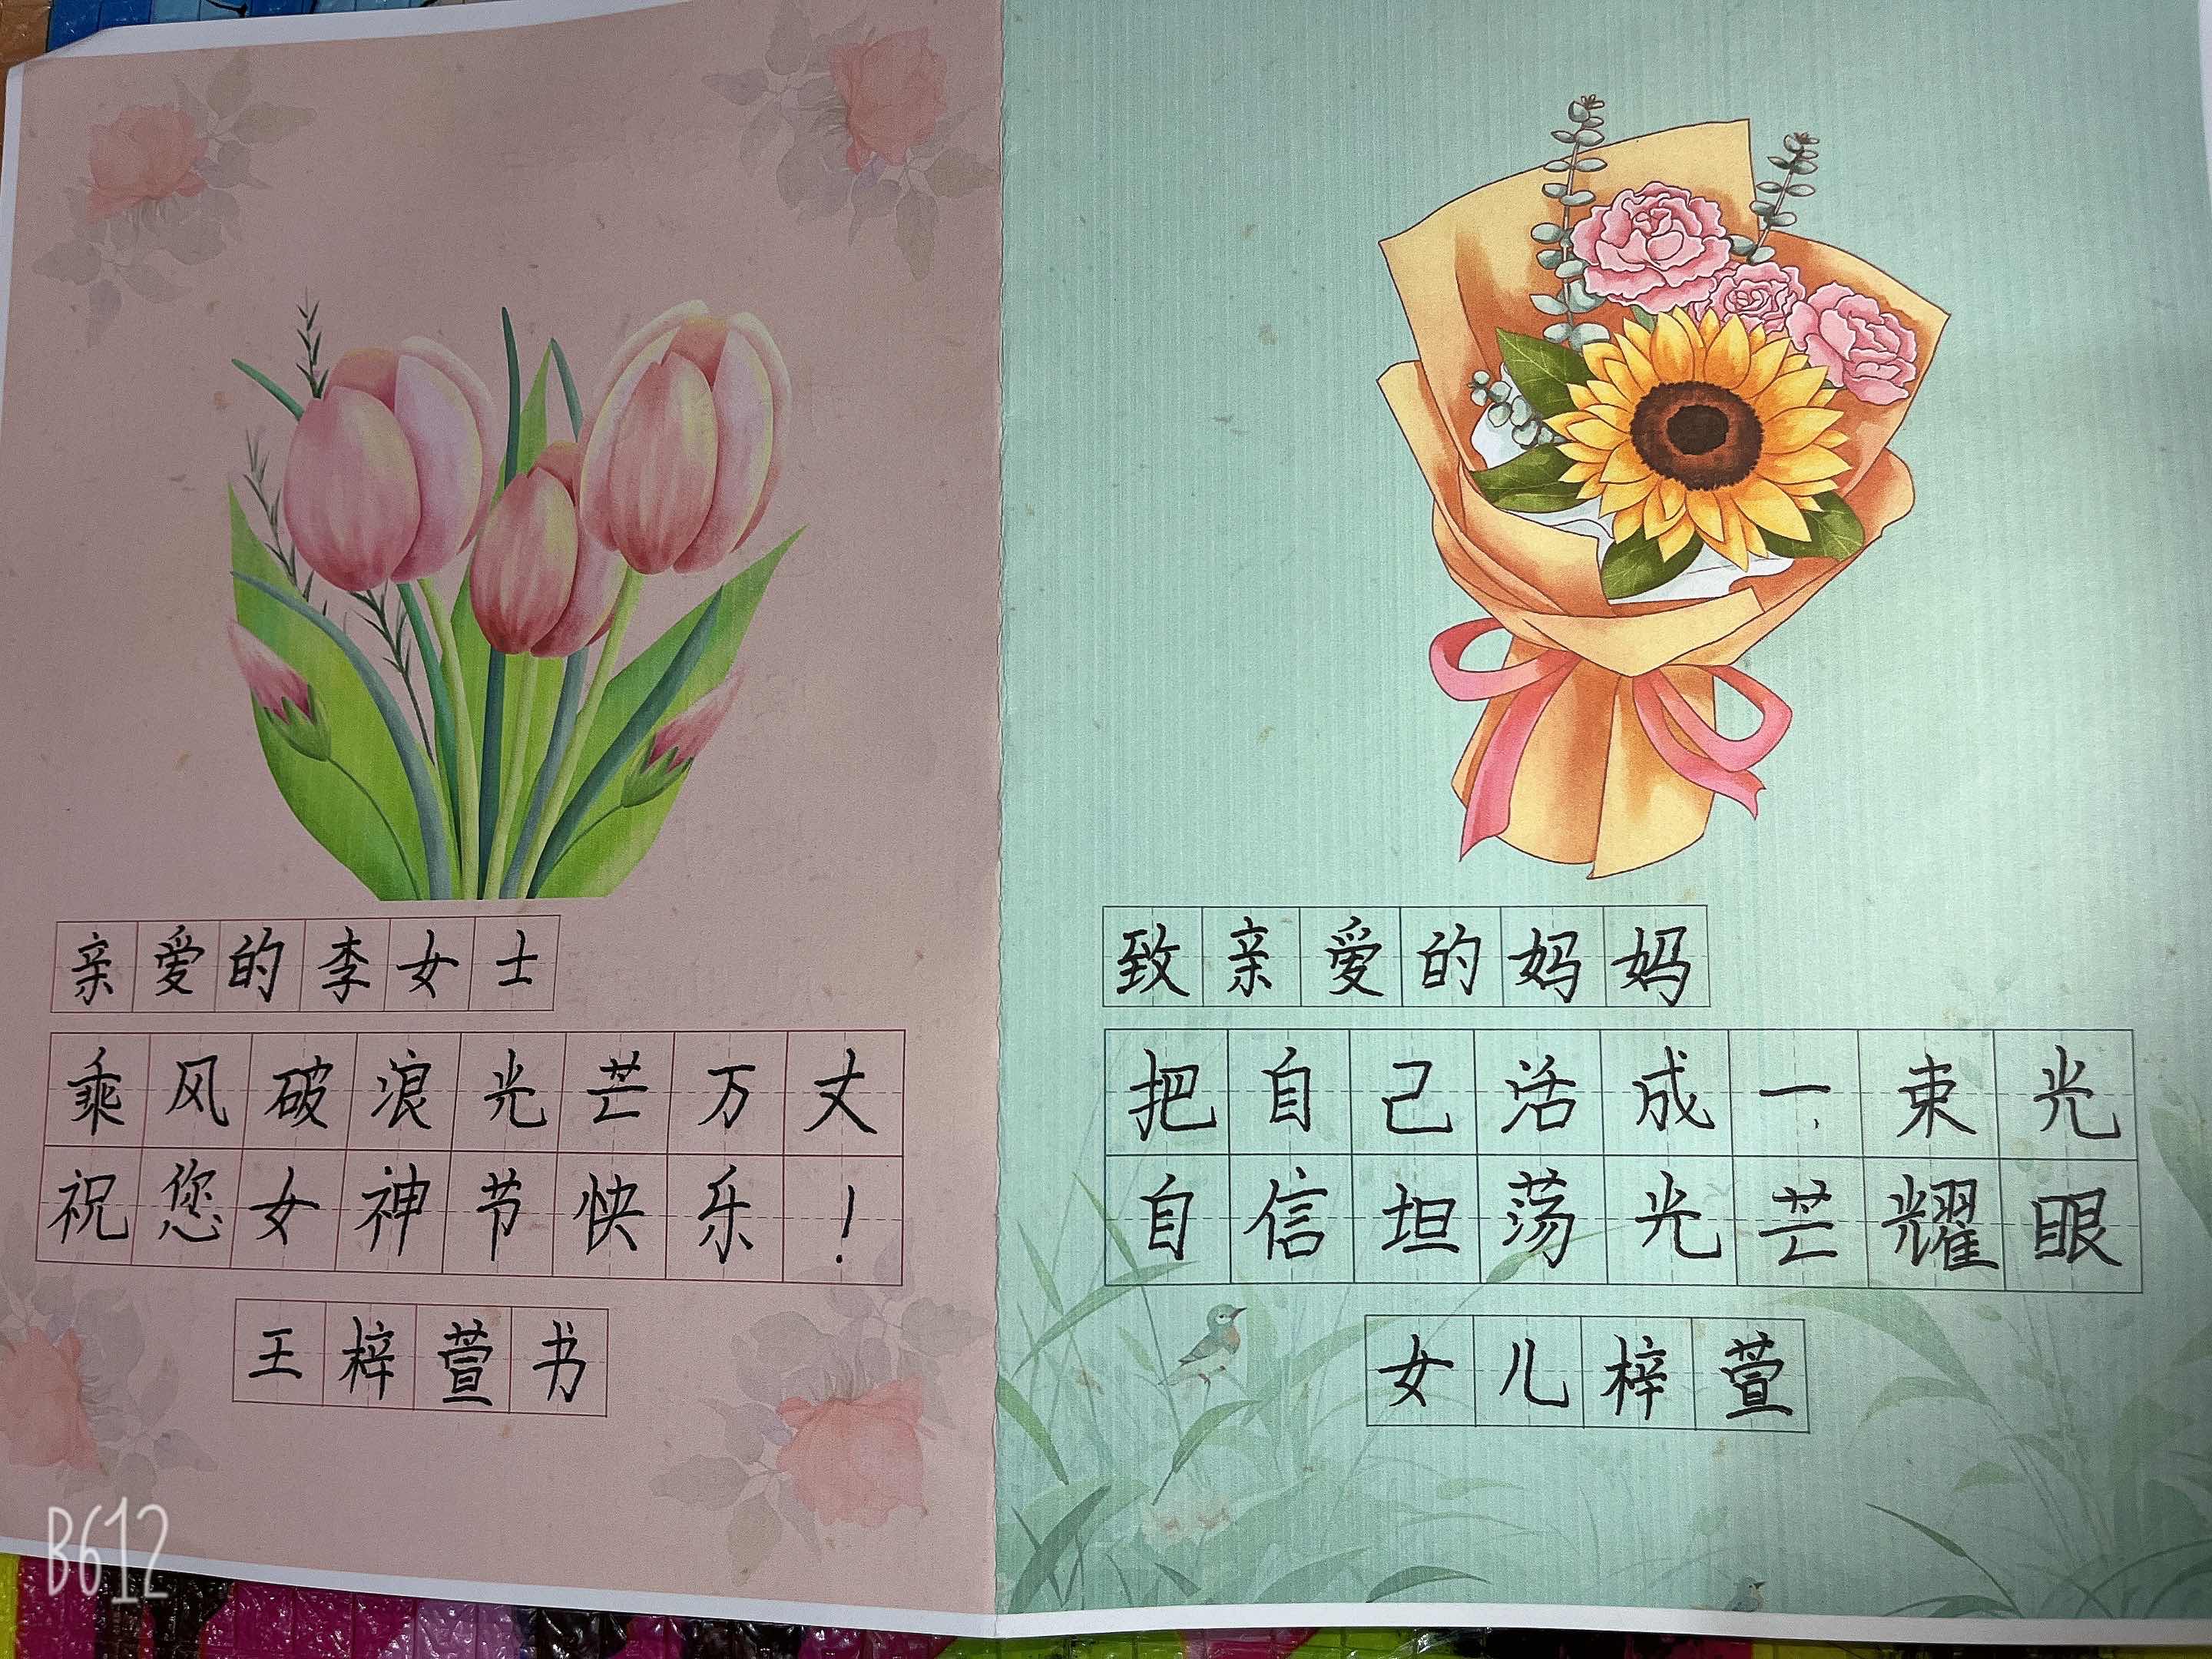 亲爱的李女士
乘风破浪光芒万丈
祝您女神节快乐！
王梓萱书
致亲爱的妈妈
把自己活成一束光
自信坦荡光芒耀眼
女儿梓萱
B612